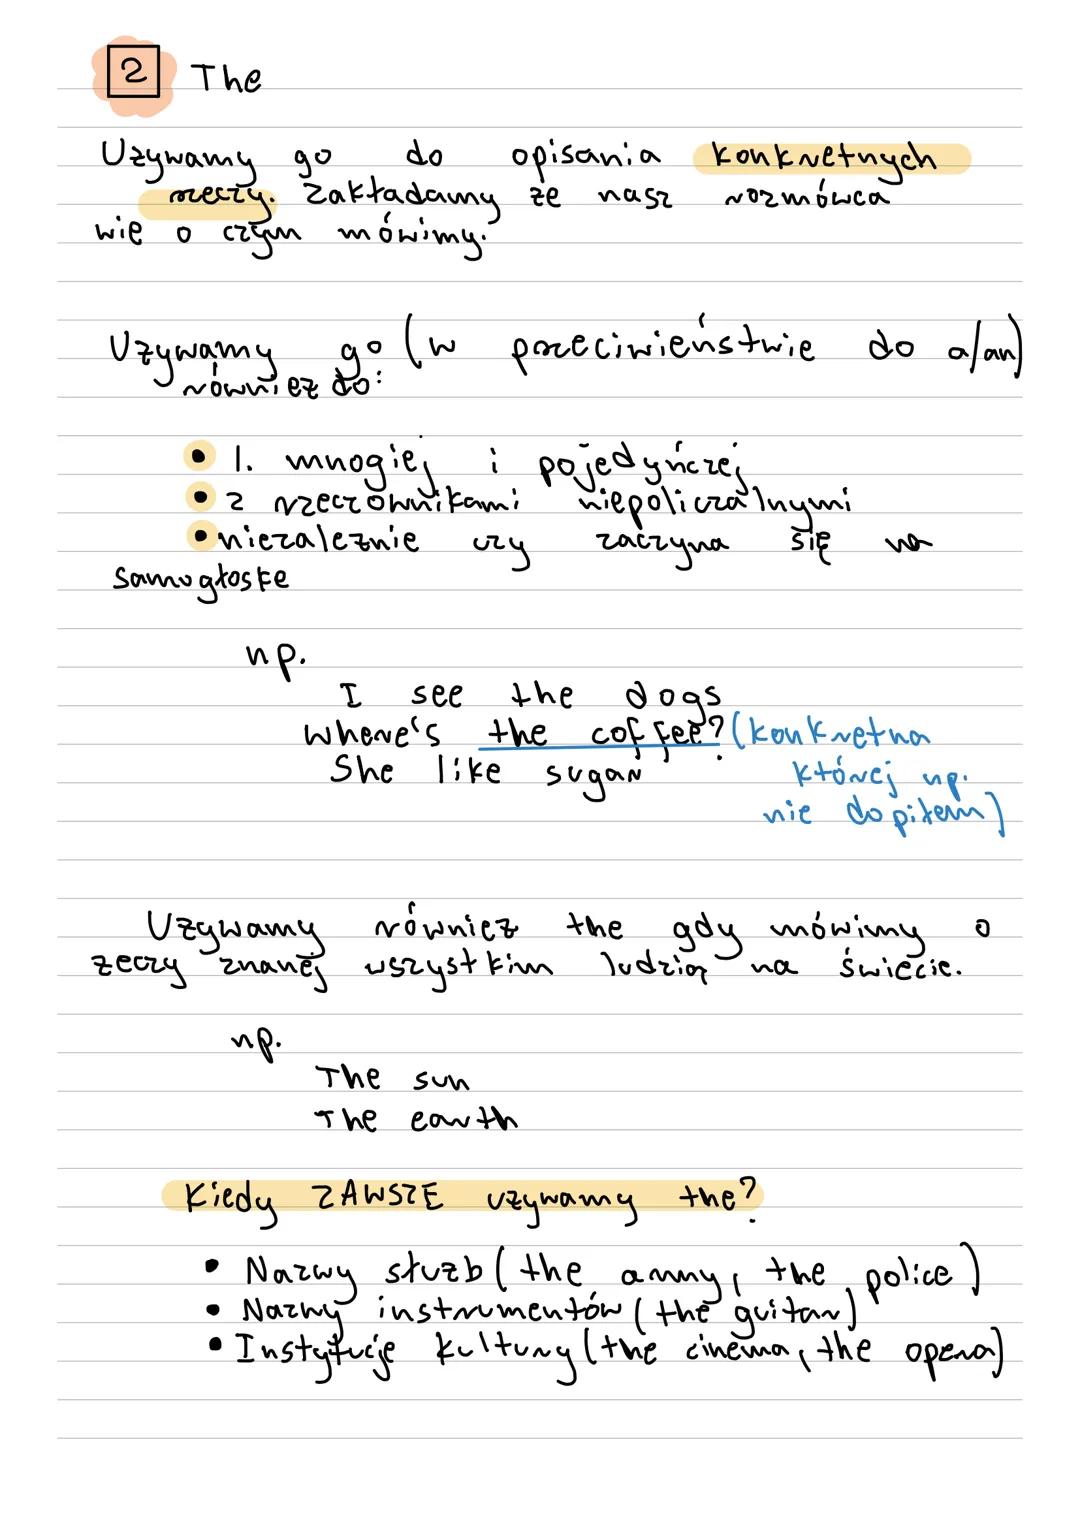 2 The
Używamy go do opisania konkretnych
rzeczy. Zakładamy że nasz rozmówca
wie o czym mówimy.
Używamy go (w przeciwieństwie do a/an)
również do:
• l. mnogiej i pojedyńczej
• z rzeczownikami niepoliczalnymi
• niezależnie czy zaczyna się na
samogłoskę
np.
I see the dogs
where's the coffee? (konkretna
She like sugar której np.
nie dopiłem)
Używamy również the gdy mówimy o
zeczy znanej wszystkim ludzią na świecie.
np.
The sun
The earth
Kiedy ZAWSZE używamy the?
• Nazwy służb (the army, the police)
• Nazwy instrumentów (the guitar)
• Instytucje kultury (the cinema, the opera)